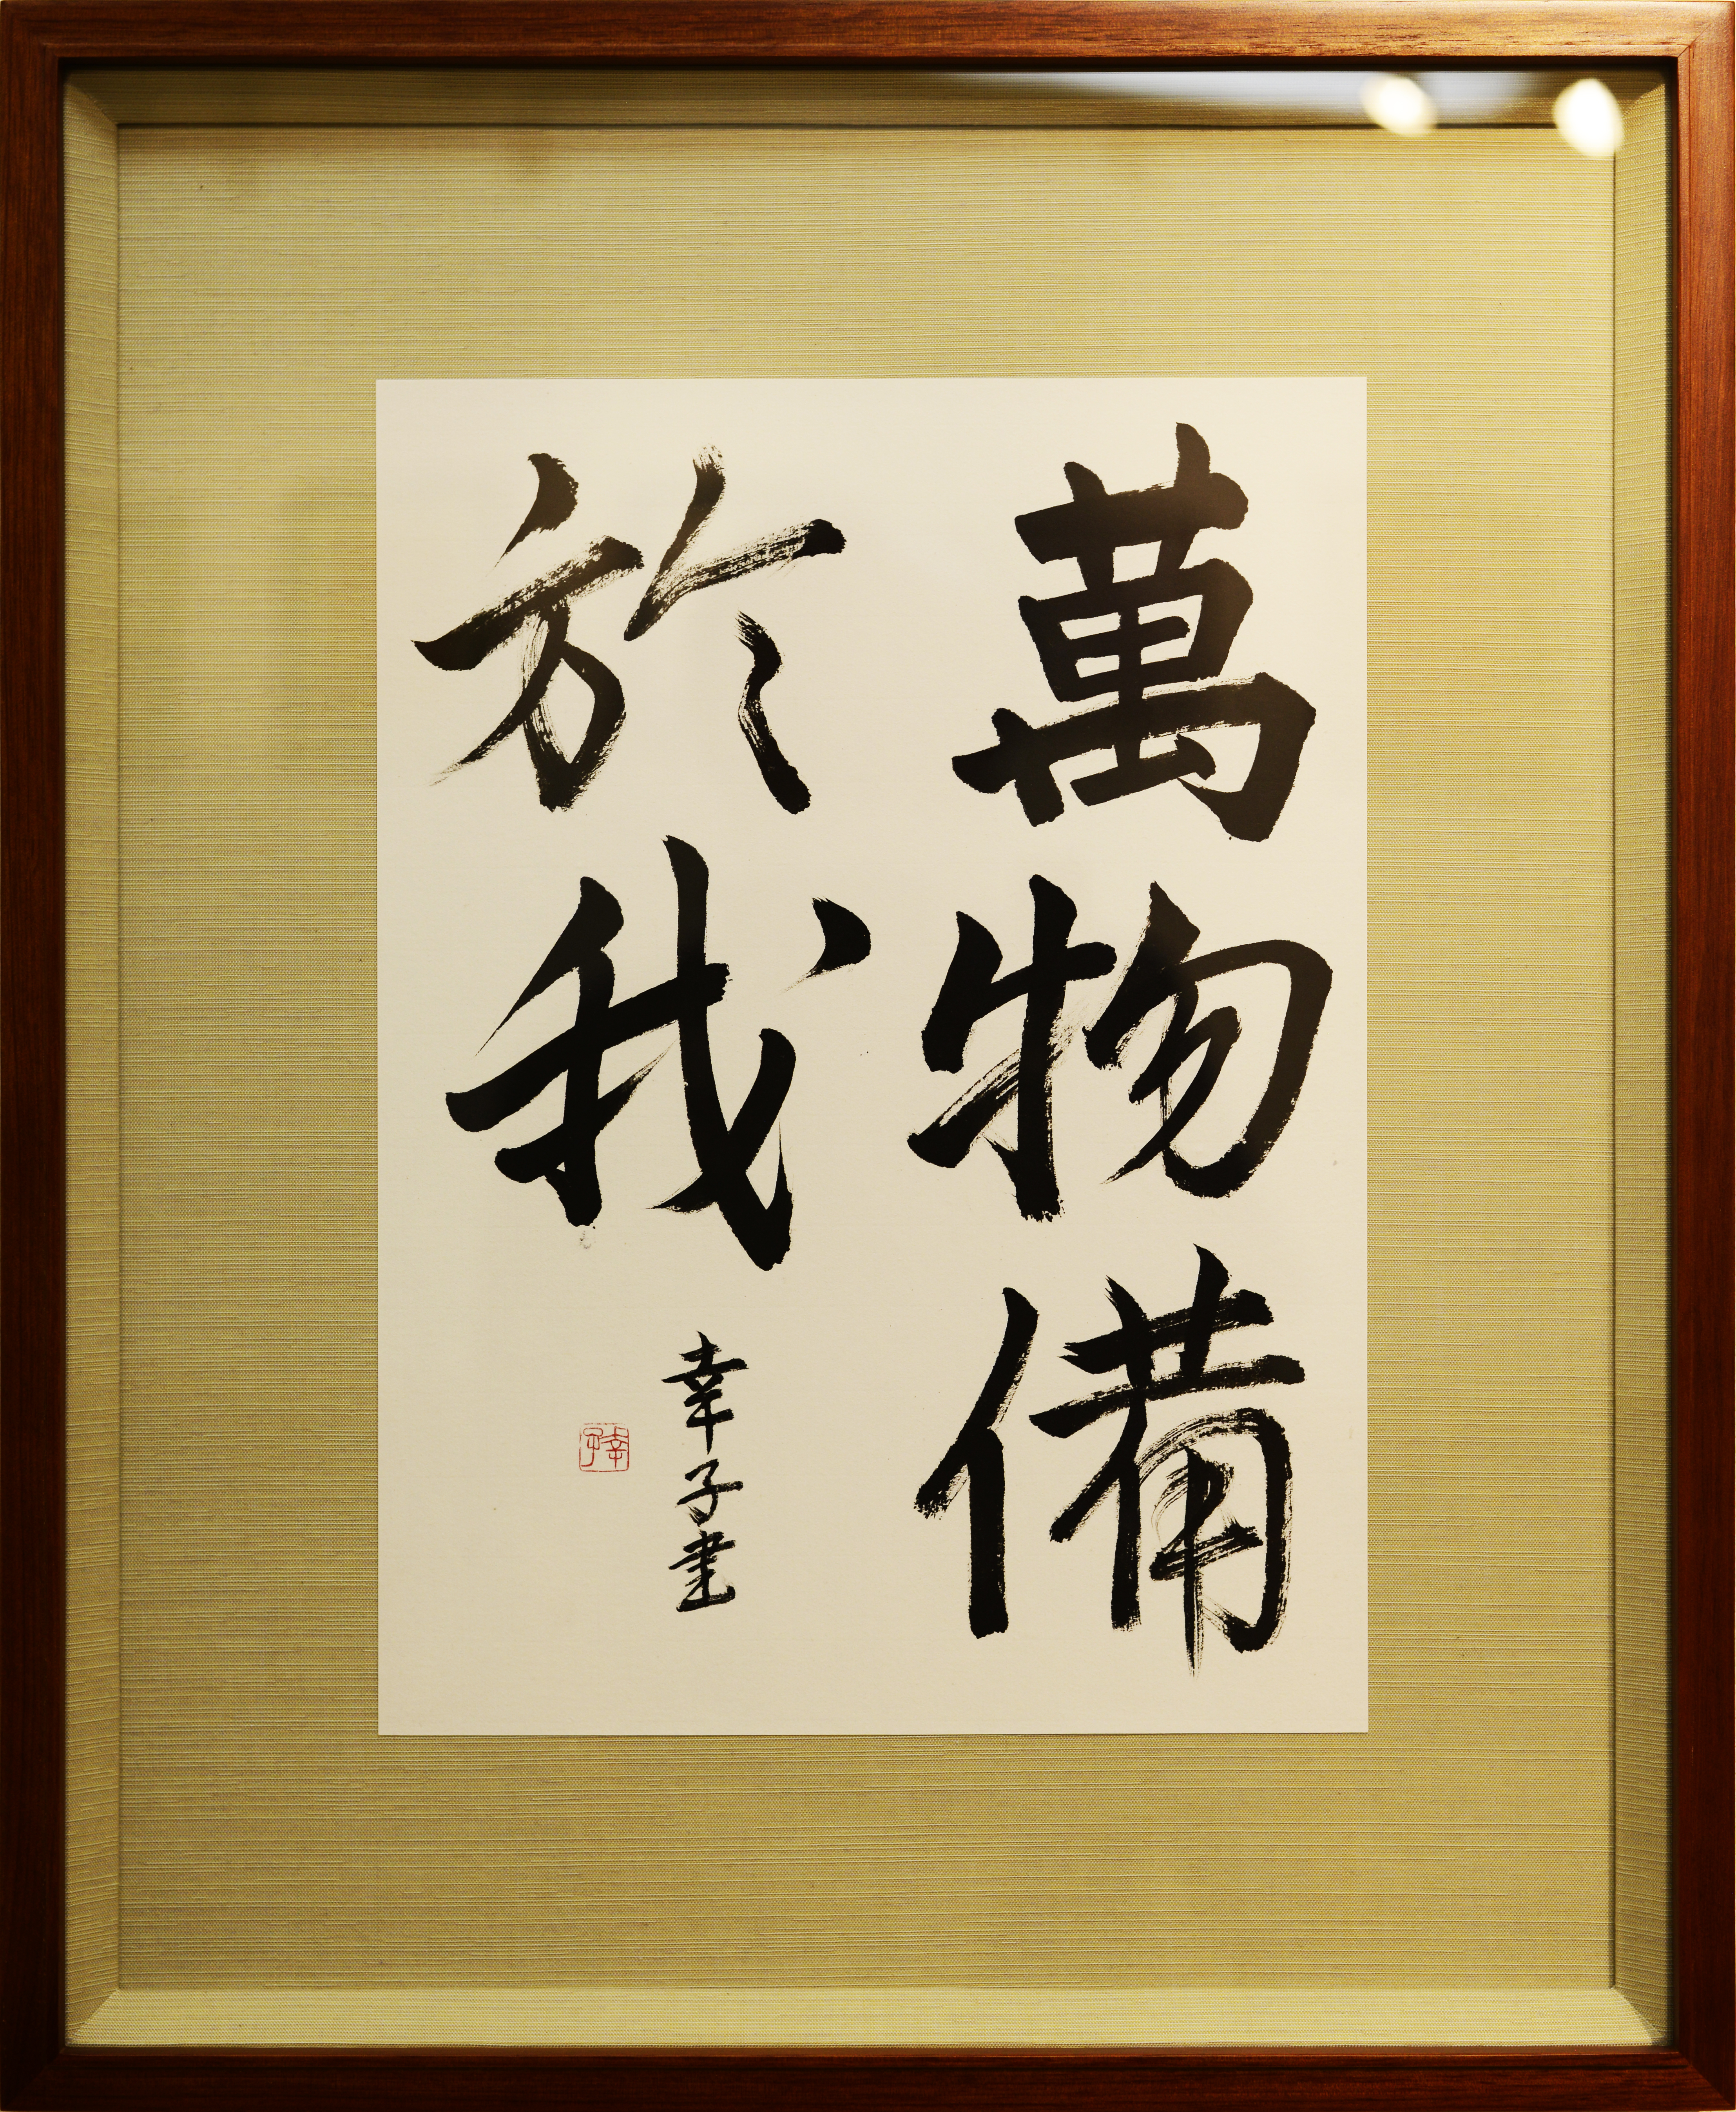 萬物備
於我
幸子書
幸子